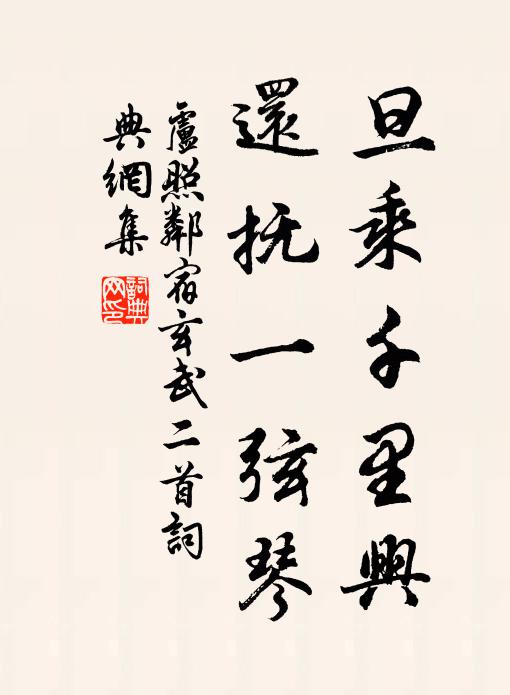 旦乘千里興
還抚一弦琴
盧照鄰宿玄武二首詞
典網集
詞典网印